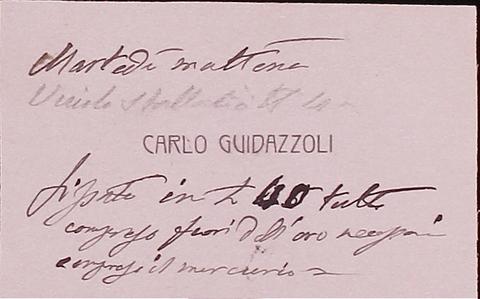 Martedì mattina
Vicolo
CARLO GUIDAZZOLI
in £ 40 tutto
compreso fuori dell'oro
compreso il mercurio